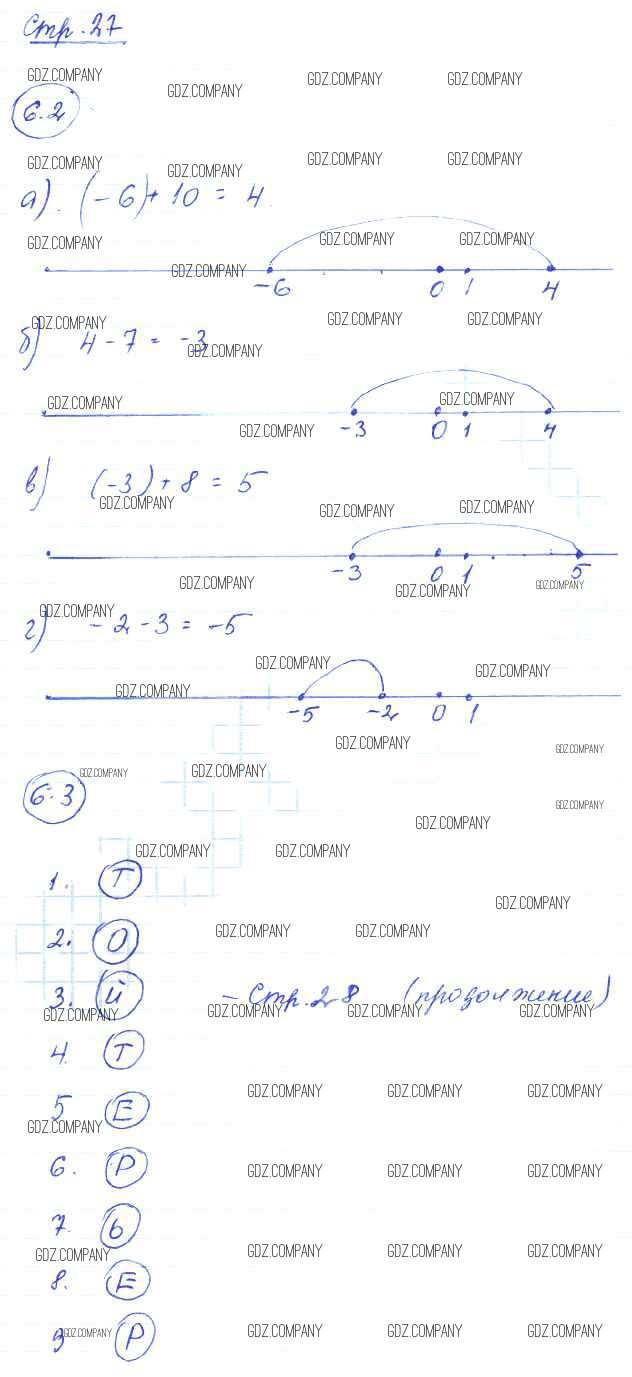 Стр. 27
GDZ.COMPANY GDZ.COMPANY GDZ.COMPANY GDZ.COMPANY
6.2
GDZ.COMPANY GDZ.COMPANY GDZ.COMPANY GDZ.COMPANY
а). (-6)+10 = 4.
GDZ.COMPANY GDZ.COMPANY GDZ.COMPANY
GDZ.COMPANY
-6 0 1 4
GDZ.COMPANY GDZ.COMPANY GDZ.COMPANY
б) 4-7 = -3
GDZ.COMPANY
GDZ.COMPANY GDZ.COMPANY
GDZ.COMPANY -3 0 1 4
в) (-3)+8 = 5
GDZ.COMPANY GDZ.COMPANY GDZ.COMPANY
-3 0 1 5
GDZ.COMPANY GDZ.COMPANY GDZ.COMPANY
GDZ.COMPANY
г) -2-3 = -5
GDZ.COMPANY GDZ.COMPANY
GDZ.COMPANY
-5 -2 0 1
GDZ.COMPANY GDZ.COMPANY
GDZ.COMPANY GDZ.COMPANY
6.3
GDZ.COMPANY
GDZ.COMPANY
GDZ.COMPANY GDZ.COMPANY
1. Т
GDZ.COMPANY
2. О GDZ.COMPANY GDZ.COMPANY
3. Й - Стр. 28 (продолжение)
GDZ.COMPANY GDZ.COMPANY GDZ.COMPANY GDZ.COMPANY
4. Т
GDZ.COMPANY GDZ.COMPANY GDZ.COMPANY
5 Е
GDZ.COMPANY
6. Р GDZ.COMPANY GDZ.COMPANY GDZ.COMPANY
7. Ь
GDZ.COMPANY GDZ.COMPANY GDZ.COMPANY GDZ.COMPANY
8. Е
9 GDZ.COMPANY Р GDZ.COMPANY GDZ.COMPANY GDZ.COMPANY